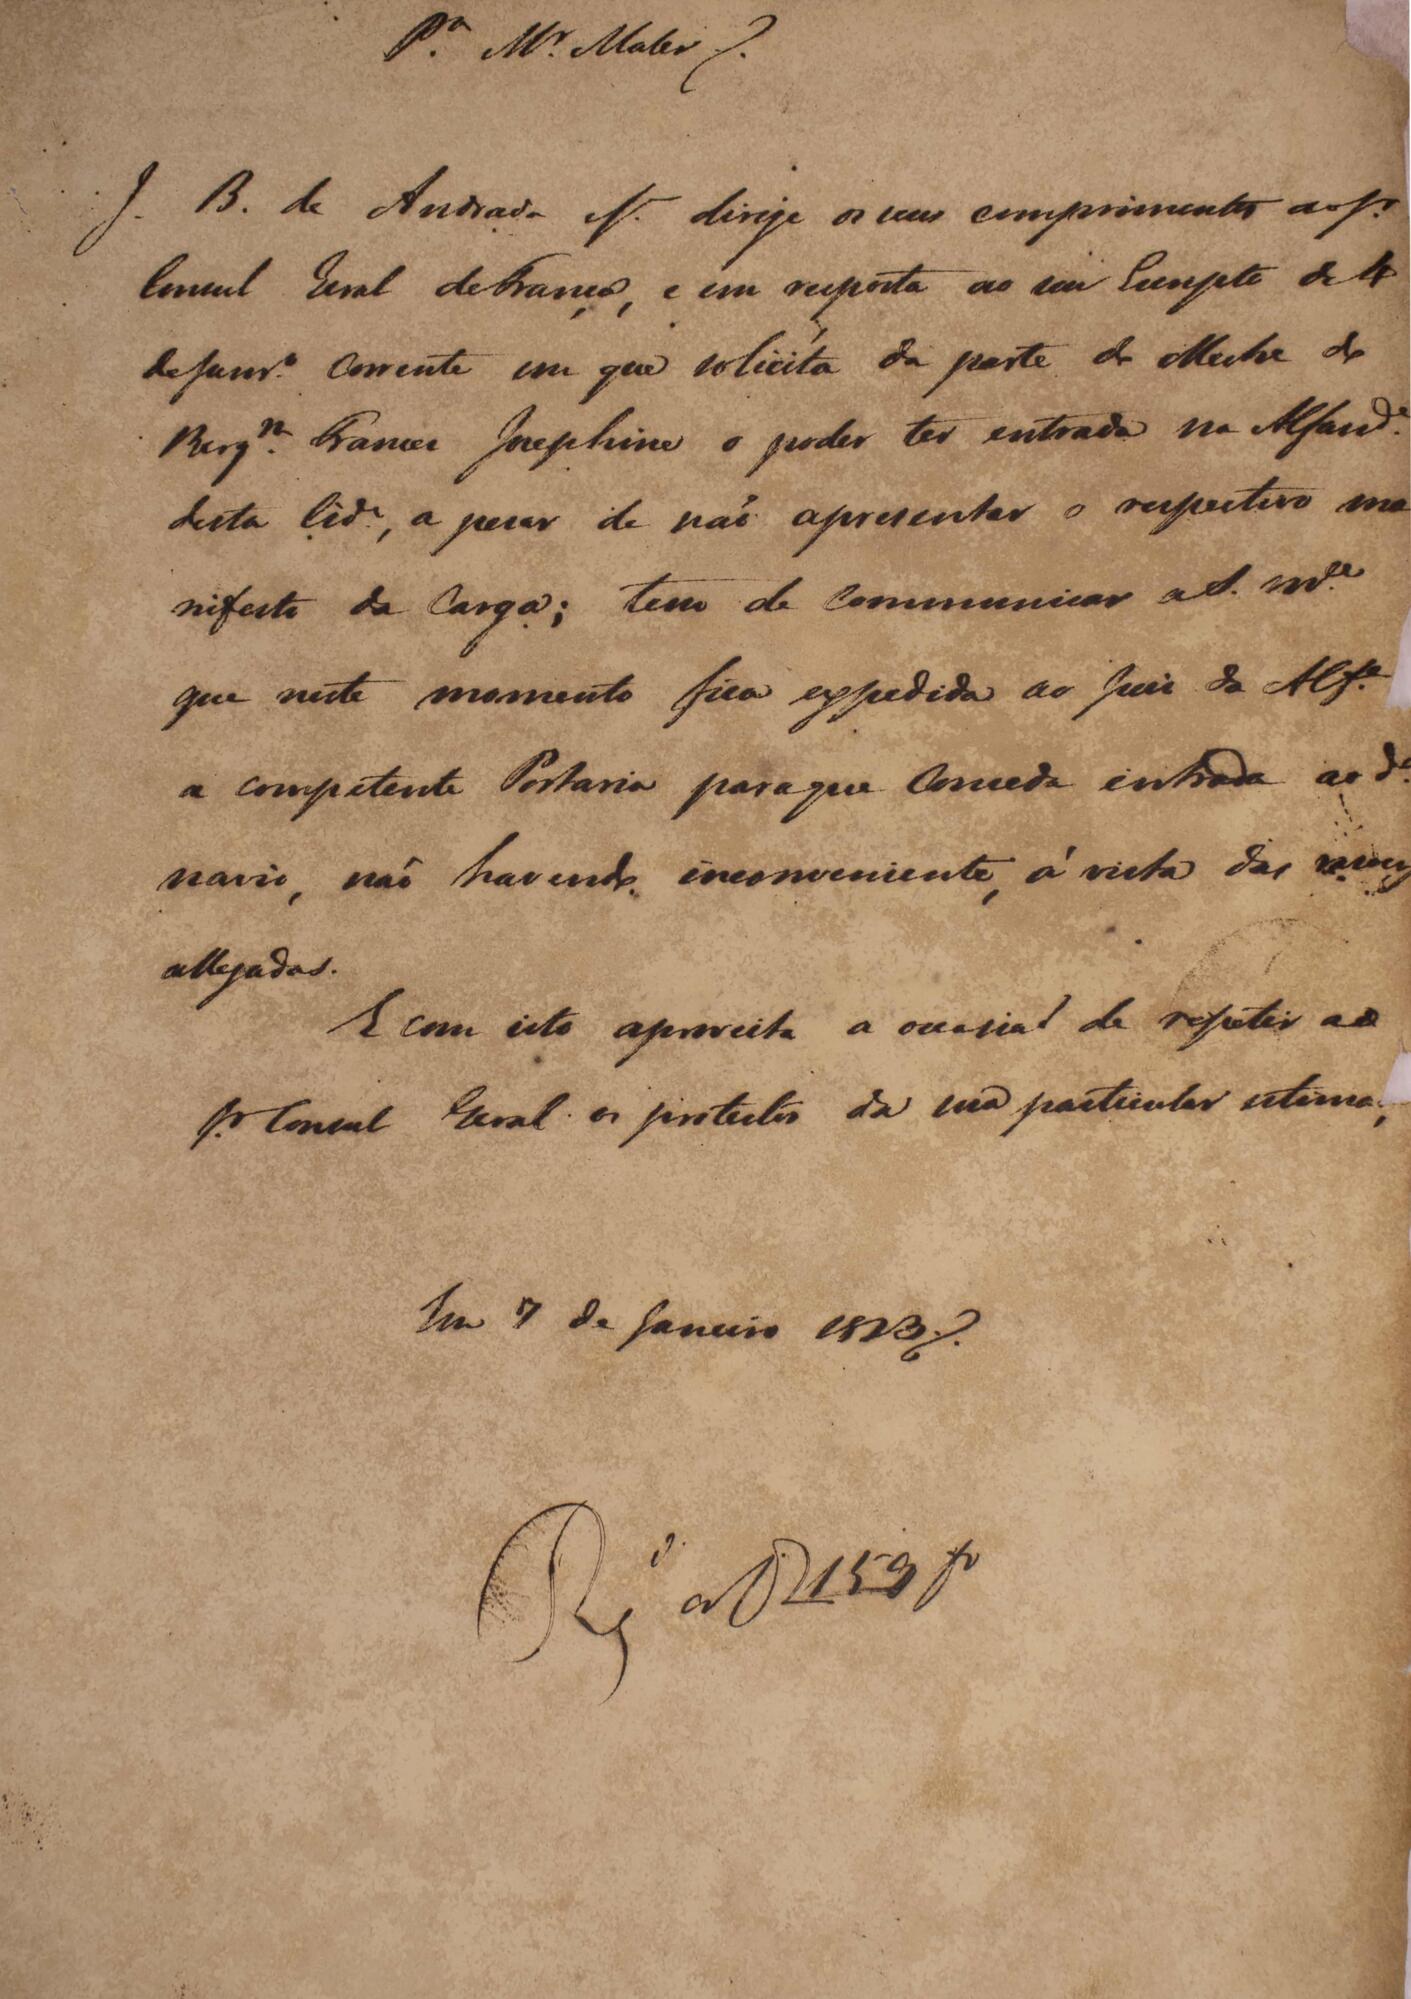 P.ª Mr. Maler
J. B. de Andrada S. dirige os seus comprimentos ao Sr.
Consul Geral de França, e em resposta ao seu Escripto de 4
de Janr.º corrente em que solicita da parte do Mestre do
Bergm. Frances Josephine o poder ter entrada na Alfand.ª
desta Cid.e, a pesar de não apresentar o respectivo ma
nifesto da Carga; tem de communicar a S. M.ce
que neste momento fica expedida ao Juiz da Alf.ª
a competente Portaria para que conceda entrada ao d.º
navio, não havendo inconveniente, á vista das razoes
allegadas.
E com isto aproveita a occasiaõ de repetir ao
Sr. Consul Geral os protestos da sua particular estima,
Em 7 de Janeiro 1823
Reg.º a f 159